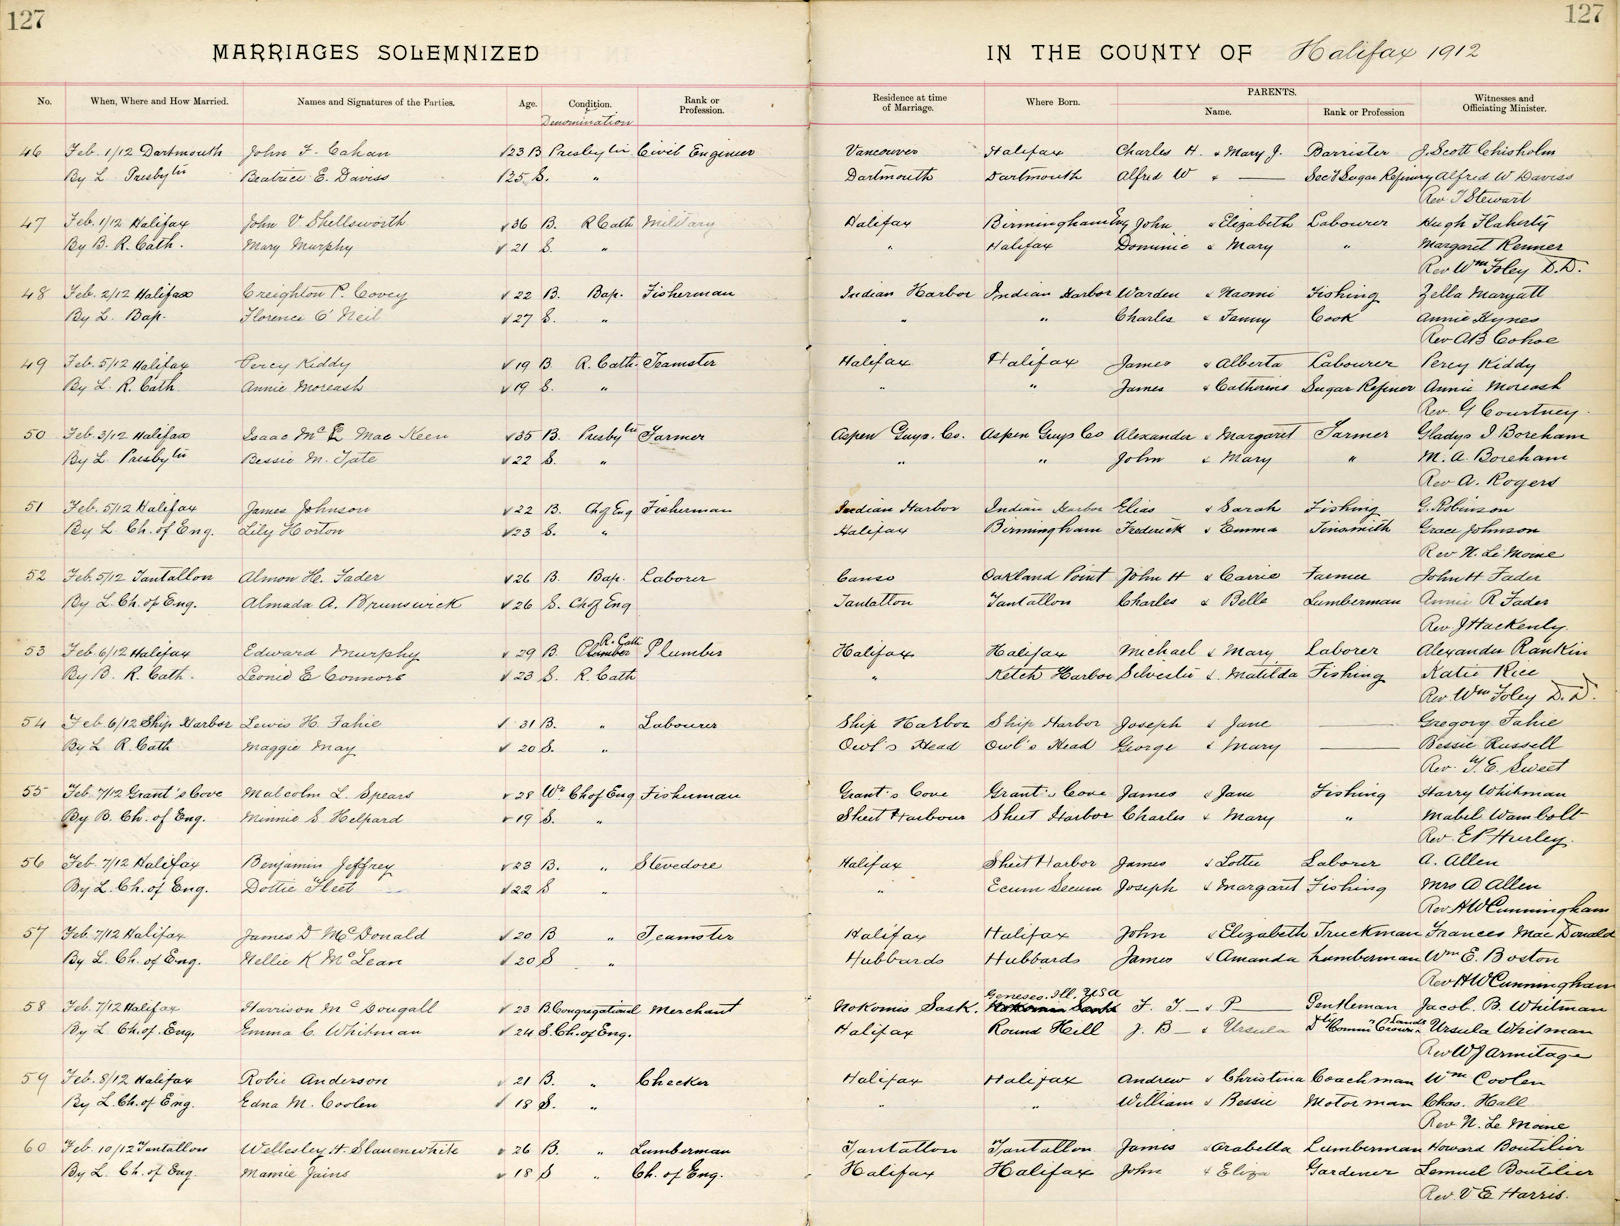 127
127
MARRIAGES SOLEMNIZED IN THE COUNTY OF Halifax 1912
No. When, Where and How Married. Names and Signatures of the Parties. Age. Condition. Denomination Rank or Profession. Residence at time of Marriage. Where Born. PARENTS. Name. Rank or Profession Witnesses and Officiating Minister.
46 Feb. 1/12 Dartmouth John F. Cahan 23 B Presbytn Civil Engineer Vancouver Halifax Charles H. & Mary J. Barrister J. Scott Chisholm
By L Presbytn Beatrice E. Daviss 25 S. " Dartmouth Dartmouth Alfred W & — Sec'y Sugar Refinery Alfred W Daviss
Rev T Stewart
47 Feb. 1/12 Halifax John V Shellsworth 36 B. R Cath Military Halifax Birmingham Eng John & Elizabeth Labourer Hugh Flaherty
By B. R. Cath. Mary Murphy 21 S. " " Halifax Dominic & Mary " Margaret Renner
Rev Wm Foley D.D.
48 Feb. 2/12 Halifax Creighton P. Covey 22 B. Bap. Fisherman Indian Harbor Indian Harbor Warden & Naomi Fishing Zella Maryatt
By L. Bap. Florence O'Neil 27 S. " " " Charles & Fanny Cook Annie Hynes
Rev AB Cohoe
49 Feb. 5/12 Halifax Percy Kiddy 19 B R. Cath. Teamster Halifax Halifax James & Alberta Labourer Percy Kiddy
By L. R. Cath. Annie Moreash 19 S. " " " James & Catherine Sugar Refiner Annie Moreash
Rev. G Courtney.
50 Feb. 3/12 Halifax Isaac Mc Mac Keen 35 B. Presbytn Farmer Aspen Guys. Co. Aspen Guys Co Alexander & Margaret Farmer Gladys I Boreham
By L. Presbytn Bessie M. Tate 22 S. " " " John & Mary " M. A. Boreham
Rev A. Rogers
51 Feb. 5/12 Halifax James Johnson 22 B. Ch of Eng Fisherman Indian Harbor Indian Harbor Elias & Sarah Fishing G. Robinson
By L Ch. of Eng. Lily Horton 23 S. " Halifax Birmingham Frederick & Emma Tinsmith Grace Johnson
Rev N. Le Moine
52 Feb. 5/12 Tantallon Almon H. Fader 26 B. Bap. Laborer Canso Oakland Point John H & Carrie Farmer John H Fader
By L. Ch. of Eng. Almada A. Brunswick 26 S. Ch of Eng Tantallon Tantallon Charles & Belle Lumberman Annie R Fader
Rev J Hackenly.
53 Feb. 6/12 Halifax Edward Murphy 29 B. Plumber R. Cath Plumber Halifax Halifax Michael & Mary Laborer Alexander Rankin
By B. R. Cath. Leonie E Connors 23 S. R. Cath " Ketch Harbor Silvestre & Matilda Fishing Katie Rice
Rev. Wm Foley D.D.
54 Feb 6/12 Ship Harbor Lewis H. Fahie 31 B. " Labourer Ship Harbor Ship Harbor Joseph & Jane — Gregory Fahie
By L R. Cath Maggie May 20 S. " Owl's Head Owl's Head George & Mary — Bessie Russell
Rev. T. E. Sweet
55 Feb. 7/12 Grant's Cove Malcolm L. Spears 28 Wr Ch of Eng Fisherman Grant's Cove Grant's Cove James & Jane Fishing Harry Whitman
By B. Ch. of Eng. Minnie S Helpard 19 S. " Sheet Harbour Sheet Harbor Charles & Mary " Mabel Wambolt
Rev. E P Hurley.
56 Feb. 7/12 Halifax Benjamin Jeffrey 23 B. " Stevedore Halifax Sheet Harbor James & Lottie Laborer A. Allen
By L. Ch. of Eng. Dottie Fleet 22 S " " Ecum Secum Joseph & Margaret Fishing Mrs A Allen
Rev HW Cunningham
57 Feb. 7/12 Halifax James D McDonald 20 B " Teamster Halifax Halifax John & Elizabeth Truckman Frances MacDonald
By L. Ch. of Eng. Nellie K McLean 20 S " Hubbards Hubbards James & Amanda Lumberman Wm E. Boston
Rev HW Cunningham
58 Feb. 7/12 Halifax Harrison McDougall 23 B Congregational Merchant Nokomis Sask. Nokomis Sask Geneseo. Ill. USA F. T. — & P — Gentleman Jacob. B. Whitman
By L Ch. of. Eng. Emma C. Whitman 24 S. Ch. of Eng. Halifax Round Hill J. B — & Ursula Dty Commr Crown Lands Ursula Whitman
Rev W J Armitage
59 Feb. 8/12 Halifax Robie Anderson 21 B. " Checker Halifax Halifax Andrew & Christina Coachman Wm Coolen
By L. Ch. of Eng. Edna M. Coolen 18 S. " " " William & Bessie Motorman Chas. Hall
Rev N. Le Moine
60 Feb. 10/12 Tantallon Wellesley H. Slauenwhite 26 B. " Lumberman Tantallon Tantallon James & Arabella Lumberman Howard Boutilier
By L. Ch. of Eng. Mamie Jains 18 S " Ch. of Eng. Halifax Halifax John & Eliza Gardener Lemuel Boutilier
Rev. V E Harris.